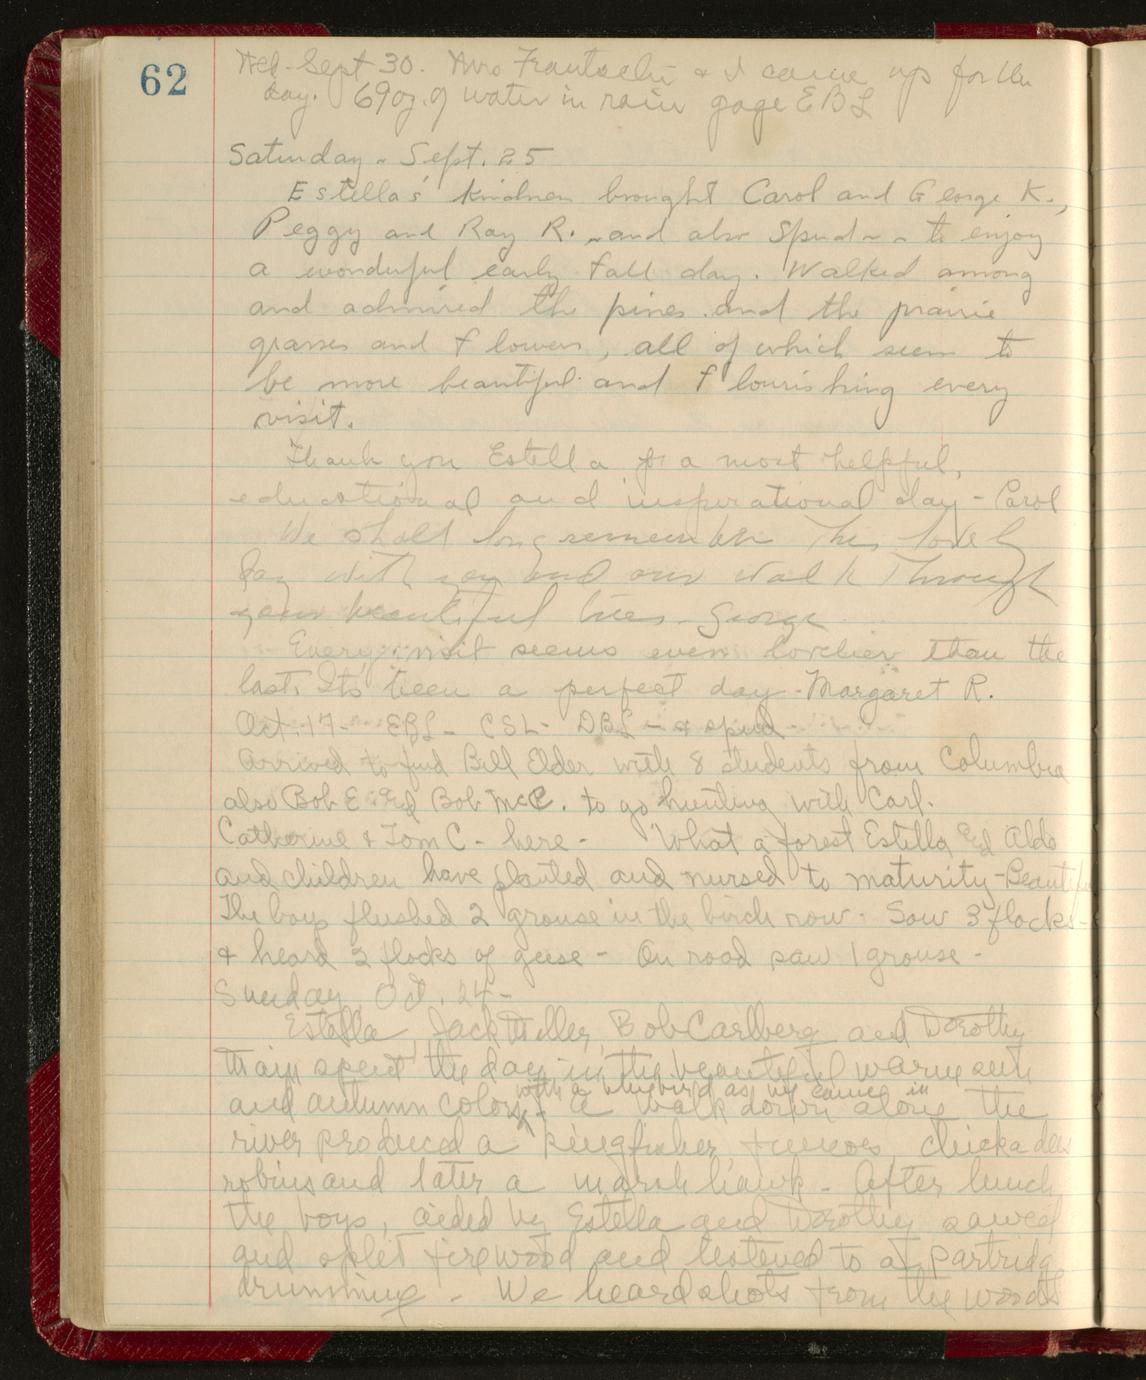 62
Wed - Sept 30. Mrs Frautschi & I came up for the
day. 69 oz. of water in rain gage EBL
Saturday - Sept. 25
Estella's kindness brought Carol and George K.,
Peggy and Ray R. - and also Spud - - to enjoy
a wonderful early fall day. Walked among
and admired the pines and the prairie
grasses and flowers, all of which seem to
be more beautiful and flourishing every
visit.
Thank you Estella for a most helpful,
educational and inspirational day - Carol
We shall long remember this lovely
day with you and our walk through
your beautiful trees - George
Every visit seems even lovelier than the
last. Its been a perfect day - Margaret R.
Oct. 17 - EBL - CSL - DBL - & Spud -
Arrived to find Bill Elder with 8 students from Columbia
also Bob E. Bob McC. to go hunting with Carl.
Catherine & Tom C - here - What a forest Estella Aldo
and children have planted and nursed to maturity - Beautiful
The boys flushed 2 grouse in the birch row - Saw 3 flocks -
& heard 2 flocks of geese - On road saw 1 grouse -
Sunday, Oct. 24 -
Estella, Jack Miller, Bob Carlberg and Dorothy
spent the day in the beautiful warm sun
with a bluebird as we came in
and autumn colors - A walk down along the
river produced a kingfisher, juncoes, chickadees
robins and later a marsh hawk - After lunch
the boys, aided by Estella and Dorothy sawed
and split firewood and listened to a partridge
drumming - We heard shots from the woods